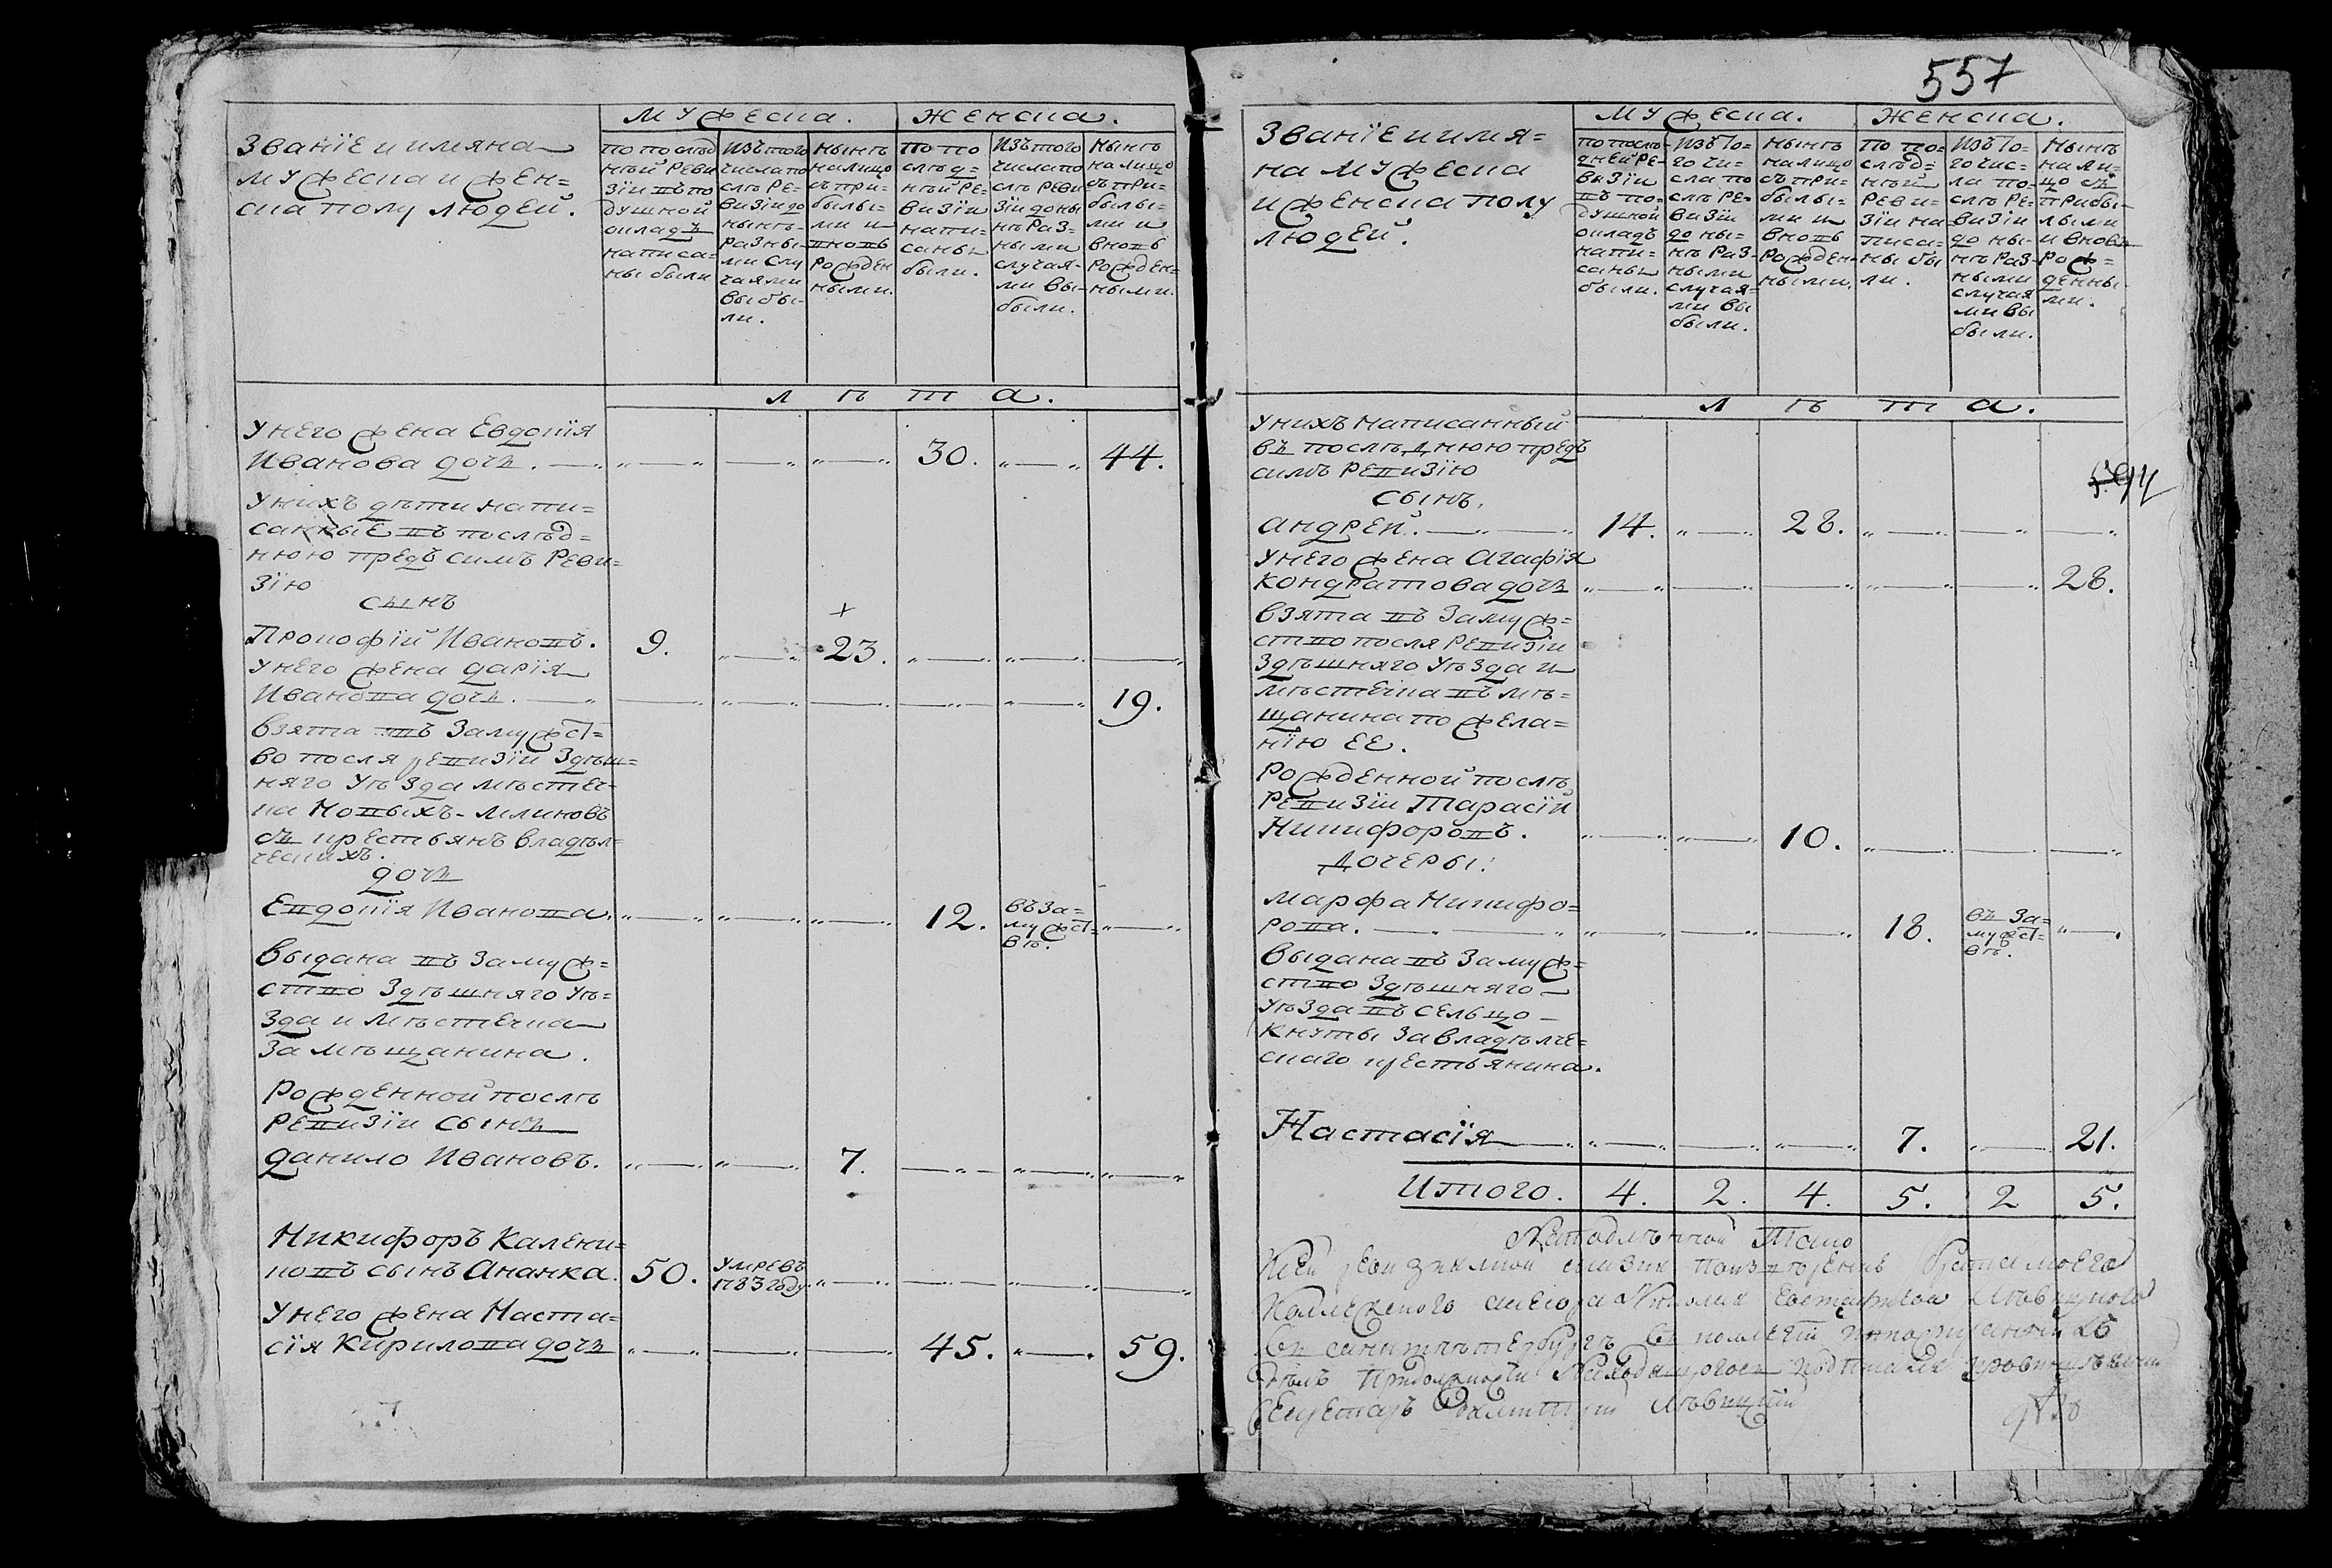 званїе и имяна
мужеска и жен=
ска полу людей.
мужеска. женска.
по послѣд
нѣй реви
зїи въ по
душной
окладъ
написа=
ны были
изъ того
числа по
слѣ ре=
визїи до
нынѣ
разны=
ми слу
чаями
выбы=
ли.
нынѣ
на лицо
съ при=
былы=
ми и
вновь
рожден
ными.
по по
слѣд=
нѣй ре=
визїи
напи=
саны
были.
изъ того
числа по
слѣ реви
зїи до ны
нѣ раз=
ными
случая=
ми вы=
были.
нынѣ
на лицо
съ при=
былы=
ми и
вновь
рожден=
ными.
л ѣ т а.
у него жена Евдокїя
Иванова дочь. 30. 44.
у нихъ дѣти напи=
санные въ послѣд=
нюю предъ симъ реви=
зїю
сынъ
Прокофїй Ивановъ. 9. 23.
у него жена дарїя
Иванова дочь. 19.
взята въ замужст=
во посля ревизїи здѣш=
няго уѣзда мѣстеч=
ка Новыхъ-млиновъ
съ крестьянъ владѣл=
ческихъ.
дочь
Евдокїя Иванова. 12. въ за=
мужст=
вѣ.
выдана въ замуж=
ство здѣшняго уѣ=
зда и мѣстечка
за мѣщанина.
рожденной послѣ
ревизїи сынъ
данило Ивановъ. 7.
Никифоръ Калени=
ковъ сынъ Ананка. 50. умре въ
1783 году
у него жена Наста=
сїя Кирилова дочь 45. 59.
557
званїе и имя=
на мужеска
и женска полу
людей.
мужеска. женска.
по послѣ=
дней ре=
визїи
въ по=
душной
окладъ
напи=
саны
были.
изъ то=
го чи=
сла по
слѣ ре=
визїи
до ны=
нѣ раз=
ными
случая=
ми вы
были.
нынѣ
на лицо
съ при=
былы=
ми и
вновь
рожден=
ными.
по по=
слѣд=
нѣй
реви=
зїи на
писа=
ны бы
ли.
изъ то=
го чис=
ла по=
слѣ ре=
визїи
до ны=
нѣ раз=
ными
случая
ми вы
были.
нынѣ
на ли=
цо съ
прибы=
лыми
и вновь
рож=
денны
ми.
л ѣ т а.
у нихъ написанный
въ послѣднюю предъ
симъ ревизїю
сынъ.
андрей. 14. 28.
у него жена Агафїя
кондратова дочь 28.
взята въ замуж=
ство посля ревизїи
здѣшняго уѣзда и
мѣстечка въ мѣ=
щанина по жела=
нїю ее.
рожденной послѣ
ревизїи Тарасїй
Никифоровъ. 10.
дочеры:
марфа Никифо=
рова. 18. въ за=
мужст=
вѣ.
выдана въ замуж=
ство здѣшняго
уѣзда въ сельцо
кнуты за владѣлче=
скаго крестьянина.
Настасїя 7. 21.
Итого. 4. 2. 4. 5. 2 5.